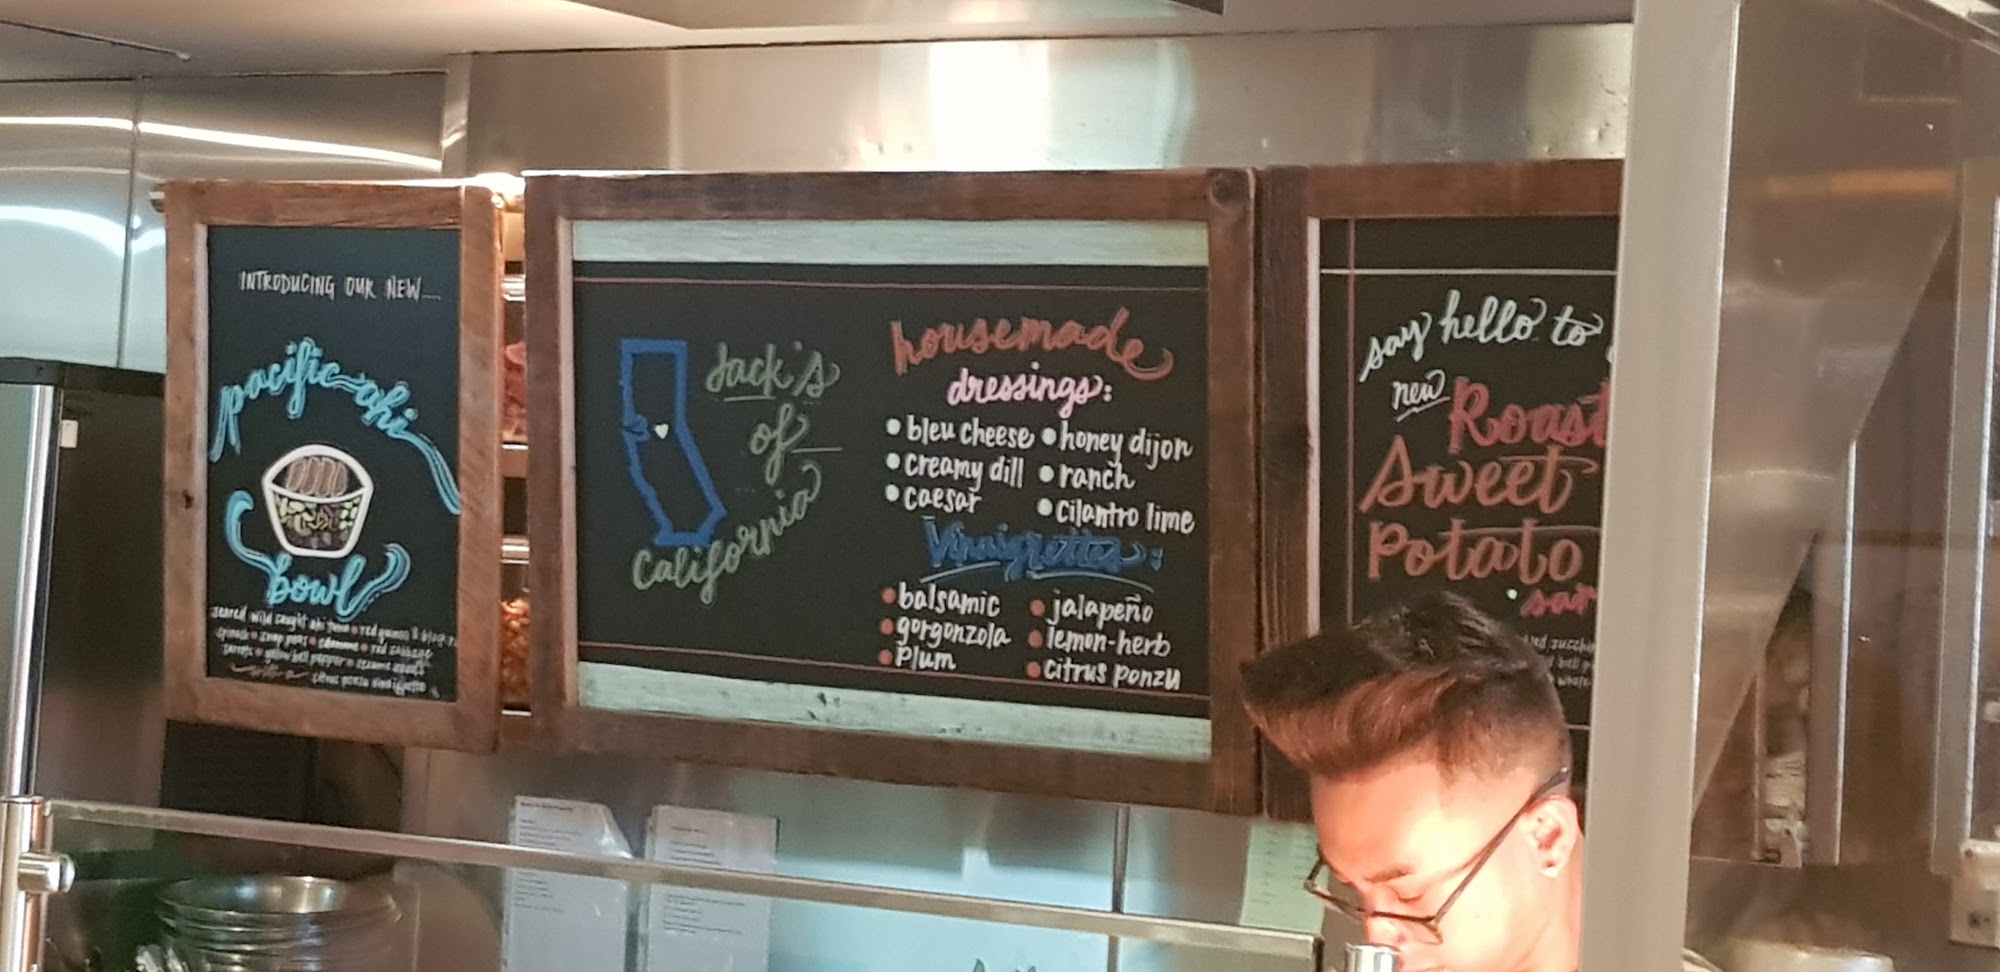 INTRODUCING OUR NEW....
pacific-ahi
bowl
seared wild caught ahi tuna • red quinoa & black
spinach • snap peas • edamame • red cabbage
carrots • yellow bell pepper • sesame seeds
citrus ponzu vinaigrette
Jack's
of
California
housemade
dressings:
• bleu cheese • honey dijon
• creamy dill • ranch
• caesar • cilantro lime
Vinaigrettes:
• balsamic • jalapeño
• gorgonzola • lemon-herb
• Plum • citrus ponzu
say hello to
new Roast
Sweet
Potato